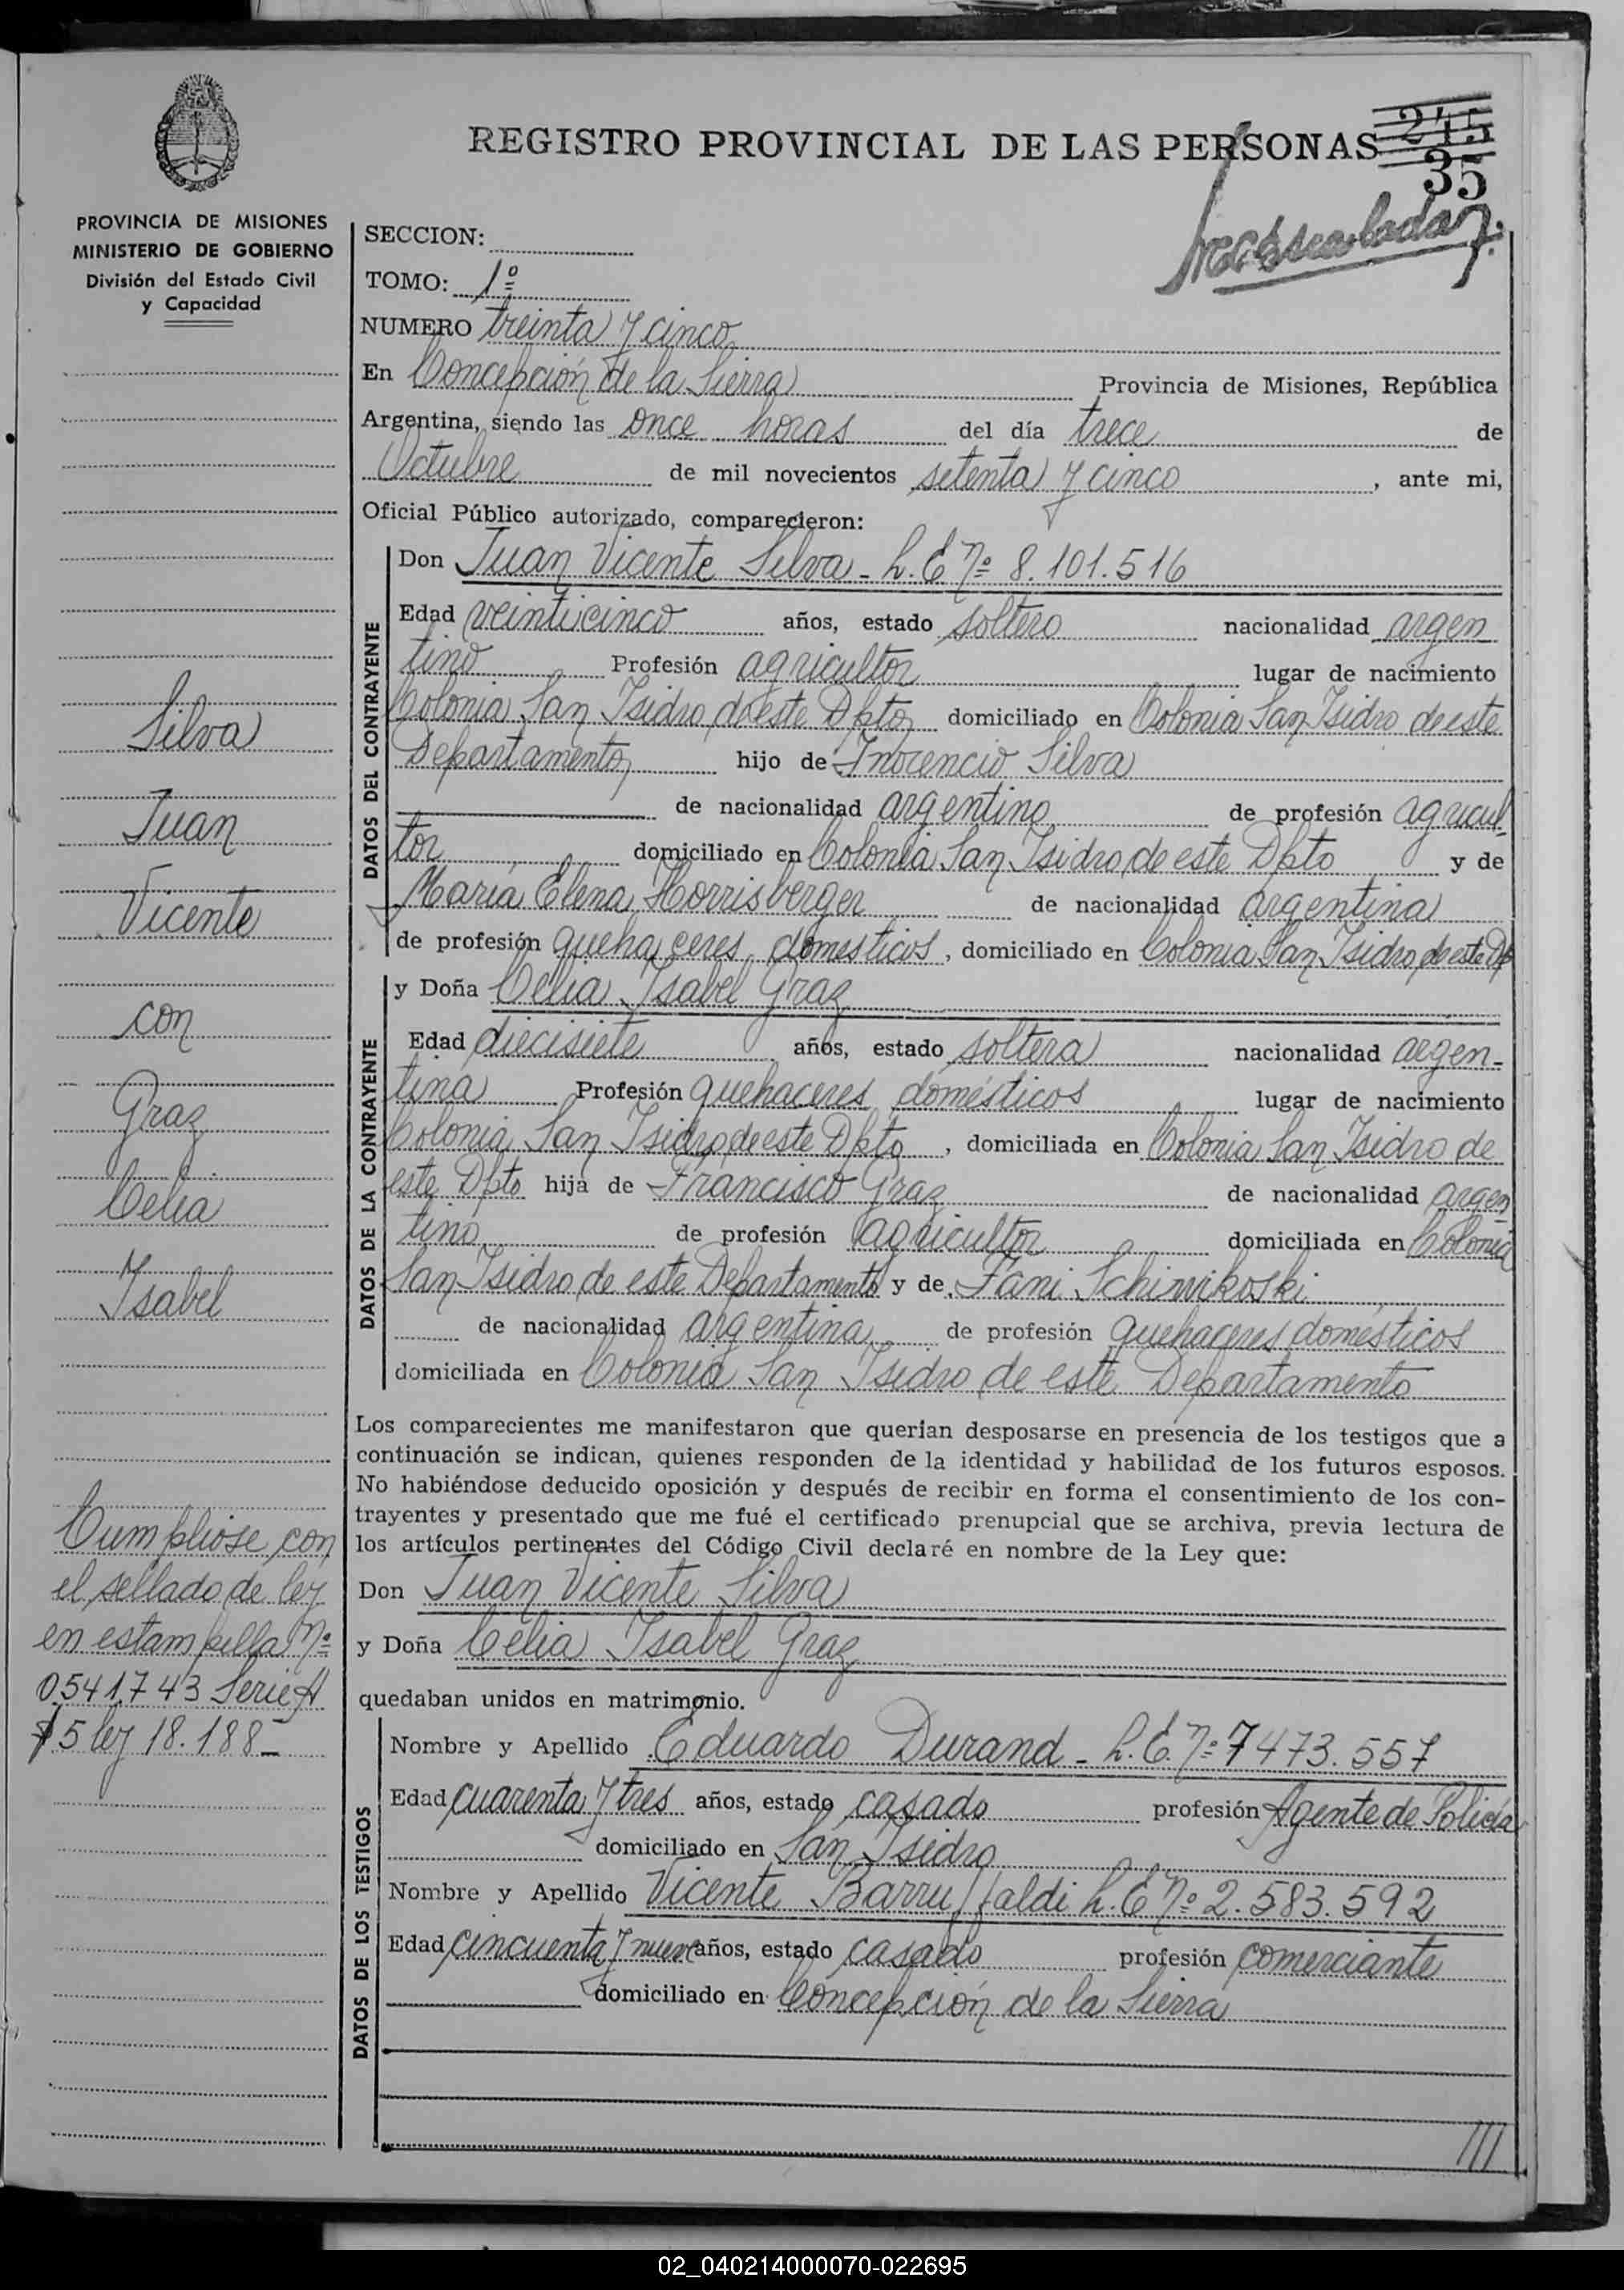 REGISTRO PROVINCIAL DE LAS PERSONAS
245
35
PROVINCIA DE MISIONES
MINISTERIO DE GOBIERNO
División del Estado Civil
y Capacidad
SECCION:
TOMO: 1º
NUMERO treinta y cinco
En Concepción de la Sierra Provincia de Misiones, República
Argentina, siendo las once horas del día trece de
Octubre de mil novecientos setenta y cinco, ante mi,
Oficial Público autorizado, comparecieron:
DATOS DEL CONTRAYENTE
Don Juan Vicente Silva - L.E Nº 8.101.516
Edad veinticinco años, estado soltero nacionalidad argen
tino Profesión agricultor lugar de nacimiento
Colonia San Isidro de este Dpto domiciliado en Colonia San Isidro de este
Departamento hijo de Inocencio Silva
de nacionalidad argentino de profesión agricul
tor domiciliado en Colonia San Isidro de este Dpto y de
María Elena Horrisberger de nacionalidad argentina
de profesión quehaceres domesticos, domiciliado en Colonia San Isidro de este Dp
DATOS DE LA CONTRAYENTE
y Doña Celia Isabel Graz
Edad diecisiete años, estado soltera nacionalidad argen-
tina Profesión quehaceres domésticos lugar de nacimiento
Colonia San Isidro de este Dpto, domiciliada en Colonia San Isidro de
este Dpto hija de Francisco Graz de nacionalidad argen
tino de profesión agricultor domiciliada en Colonia
San Isidro de este Departamento y de Fani Schinvikoski
de nacionalidad argentina de profesión quehaceres domésticos
domiciliada en Colonia San Isidro de este Departamento
Los comparecientes me manifestaron que querían desposarse en presencia de los testigos que a
continuación se indican, quienes responden de la identidad y habilidad de los futuros esposos.
No habiéndose deducido oposición y después de recibir en forma el consentimiento de los con-
trayentes y presentado que me fué el certificado prenupcial que se archiva, previa lectura de
los artículos pertinentes del Código Civil declaré en nombre de la Ley que:
Don Juan Vicente Silva
y Doña Celia Isabel Graz
quedaban unidos en matrimonio.
DATOS DE LOS TESTIGOS
Nombre y Apellido Eduardo Durand - L.E. Nº 7473.557
Edad cuarenta y tres años, estado casado profesión Agente de Policía
domiciliado en San Isidro
Nombre y Apellido Vicente Barruffaldi L.E Nº 2.583.592
Edad cincuenta y nueve años, estado casado profesión comerciante
domiciliado en Concepción de la Sierra
///
Silva
Juan
Vicente
con
Graz
Celia
Isabel
Cumpliose con
el sellado de ley
en estampilla Nº
0541743 Serie A
$ 5 ley 18.188-
02_040214000070-022695